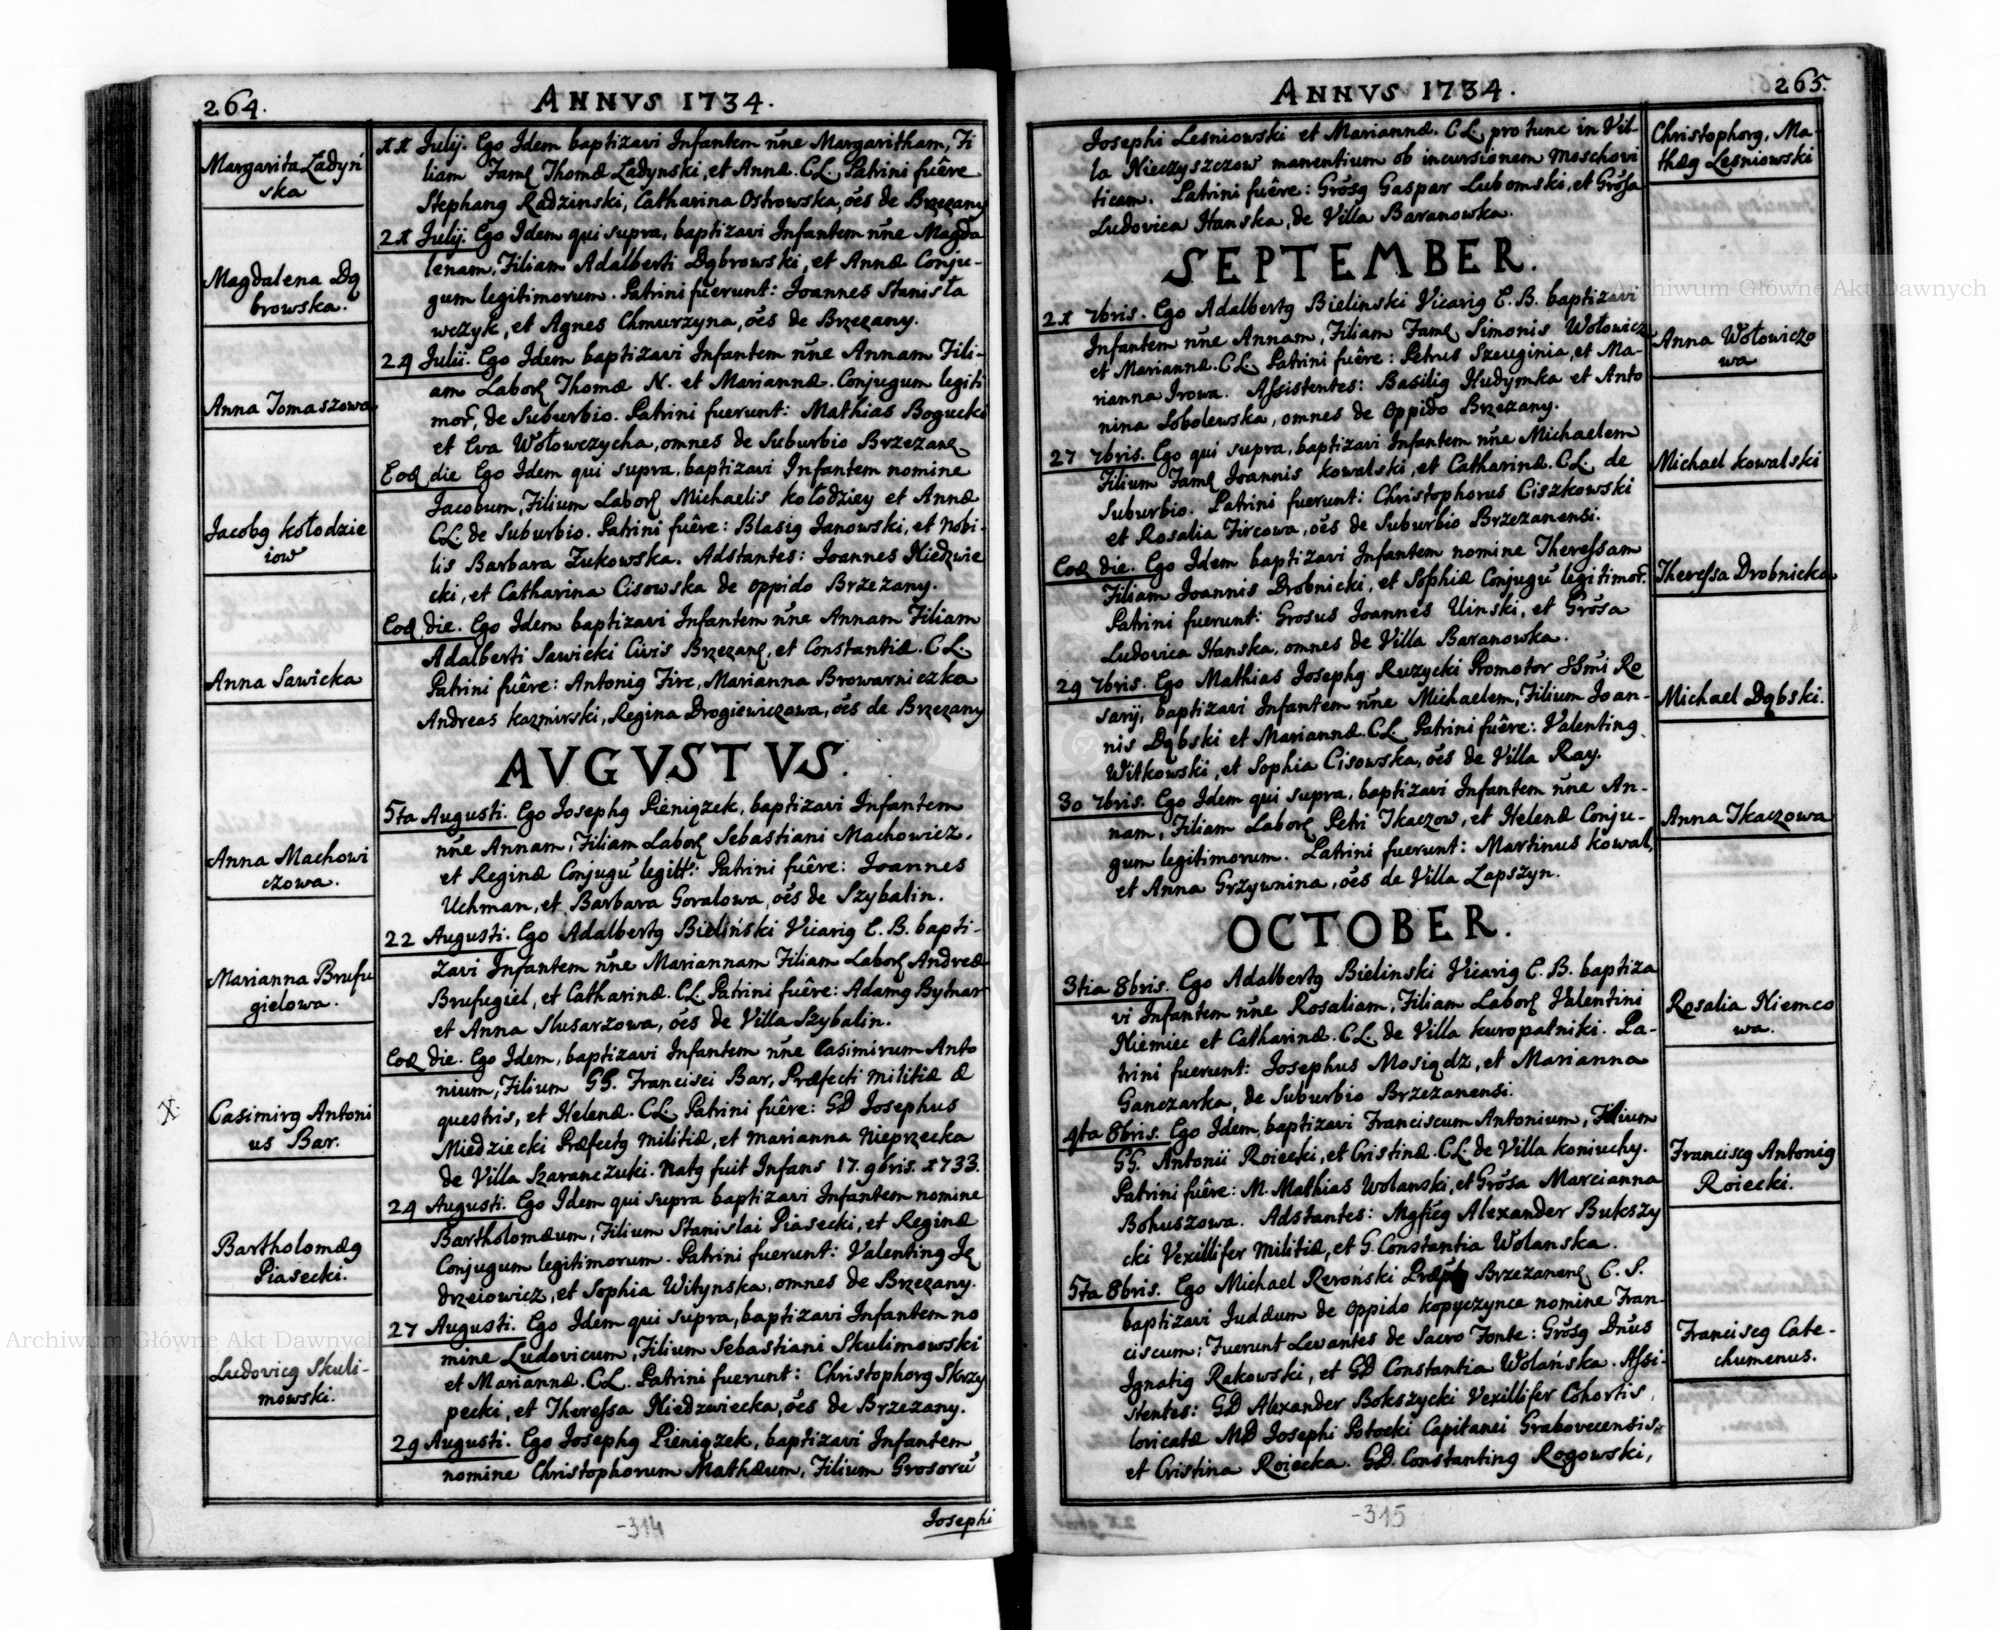 264.
ANNVS 1734.
Margarita Ładyń
ska
11 Julij. Ego Idem baptizavi Infantem nñe Margaritham, Fi
liam Famꝭ Thomæ Ładynski, et Annæ. C L. Patrini fuêre
Stephanꝯ Radzinski, Catharina Ostrowska, óẽs de Brzezany
Magdalena Dą
browska.
21 Julij. Ego Idem qui supra, baptizavi Infantem nñe Magda
lenam, Filiam Adalberti Dąbrowski, et Annæ Conju-
gum legitimorum. Patrini fuerunt: Joannes Stanisła
wczyk, et Agnes Chmurzyna, óẽs de Brzezany.
Anna Tomaszowa
24 Julii. Ego Idem baptizavi Infantem nñe Annam Fili-
am Laborꝭ Thomæ N. et Mariannæ. Conjugum legiti
mor̃, de Suburbio. Patrini fuerunt: Mathias Bogucki
et Eva Wołowczycha, omnes de Suburbio Brzezanꝭ
Jacobꝯ Kołodzie
iow
Eodꝭ die Ego Idem qui supra, baptizavi Infantem nomine
Jacobum, Filium Laborꝭ Michaelis Kołodziey et Annæ
CL. de Suburbio. Patrini fuêre: Blasiꝯ Janowski, et Nobi-
lis Barbara Żukowska. Adstantes: Joannes Niedzwie
cki, et Catharina Cisowska de Oppido Brzezany.
Anna Sawicka
Eodꝭ die. Ego Idem baptizavi Infantem nñe Annam Filiam
Adalberti Sawicki Civis Brzezanꝭ, et Constantiæ. C L.
Patrini fuêre: Antoniꝯ Firc, Marianna Browarniczka
Andreas Kazmirski, Regina Drogiewiczowa, óẽs de Brzezany
AVGVSTVS.
Anna Machowi
czowa.
5ta Augusti. Ego Josephꝯ Pieniązek, baptizavi Infantem
nñe Annam, Filiam Laborꝭ Sebastiani Machowicz,
et Reginæ Conjugũ legitt: Patrini fuêre: Joannes
Uchman, et Barbara Goralowa, óẽs de Szybalin.
Marianna Brufu
gielowa.
22 Augusti. Ego Adalbertꝯ Bieliński Vicariꝯ E. B. bapti-
zavi Infantem nñe Mariannam Filiam Laborꝭ Andreæ
Brufugiel, et Catharinæ. CL. Patrini fuêre: Adamꝯ Bytnar
et Anna Slusarzowa, óẽs de Villa Szybalin.
Casimirꝯ Antoni
us Bar.
Eodꝭ die. Ego Idem, baptizavi Infantem nñe Casimirum Anto
nium, Filium GG. Francisci Bar, Præfecti militiæ æ
questris, et Helenæ. CL. Patrini fuêre: GD Josephus
Miedziecki Præfectꝯ militiæ, et Marianna Nieprzecka
de Villa Szaranczuki. Natꝯ fuit Infans 17. 9bris. 1733.
Bartholomæꝯ
Piasecki.
24 Augusti. Ego Idem qui supra baptizavi Infantem nomine
Bartholomæum, Filium Stanislai Piasecki, et Reginæ
Conjugum legitimorum. Patrini fuerunt: Valentinꝯ Ję
drzeiowicz, et Sophia Witynska, omnes de Brzezany.
Ludovicꝯ Skuli-
mowski.
27 Augusti. Ego Idem qui supra, baptizavi Infantem no
mine Ludovicum, Filium Sebastiani Skulimowski
et Mariannæ. CL. Patrini fuerunt: Christophorꝯ Skrzy
pecki, et Theressa Niedzwiecka, óẽs de Brzezany.
29 Augusti. Ego Josephꝯ Pieniązek, baptizavi Infantem
nomine Christophorum Mathæum, Filium Grosorũ
Josephi
-314
265.
ANNVS 1734.
Christophorꝯ, Ma-
thæꝯ Lesniowski
Josephi Lesniowski et Mariannæ. CL. pro tunc in Vil-
la Nieczyszczow manentium ob incursionem Moschovi
ticam. Patrini fuêre: Grõsꝯ Gaspar Lubomski, et Grõsa
Ludovica Hanska, de Villa Baranowka.
SEPTEMBER.
Anna Wołowiczo
wa
21 7bris. Ego Adalbertꝯ Bielinski Vicariꝯ E. B. baptizavi
Infantem nñe Annam, Filiam Famꝭ Simonis Wołowicz
et Mariannæ. CL. Patrini fuêre: Petrus Szeuginia, et Ma-
rianna Irowa. Assistentes: Basiliꝯ Hudymka et Anto
nina Sobolewska, omnes de Oppido Brzezany.
Michael Kowalski
27 7bris. Ego qui supra, baptizavi Infantem nñe Michaelem
Filium Famꝭ Joannis Kowalski, et Catharinæ. CL. de
Suburbio. Patrini fuerunt: Christophorus Ciszkowski
et Rosalia Fircowa, óẽs de Suburbio Brzezanensi.
Theressa Drobnicka
Eodꝭ die. Ego Idem baptizavi Infantem nomine Theressam
Filiam Joannis Drobnicki, et Sophiæ Conjugũ legitimor̃.
Patrini fuerunt: Grosus Joannes Uinski, et Grõsa
Ludovica Hanska, omnes de Villa Baranowka.
Michael Dąbski.
29 7bris. Ego Mathias Josephꝯ Ruzycki Promotor SSmi Ro
sarij, baptizavi Infantem nñe Michaelem, Filium Joan-
nis Dąbski et Mariannæ. CL. Patrini fuêre: Valentinꝯ
Witkowski, et Sophia Cisowska, óẽs de Villa Ray.
Anna Tkaczowa
30 7bris. Ego Idem qui supra, baptizavi Infantem nñe An-
nam, Filiam Laborꝭ Petri Tkaczow, et Helenæ Conju-
gum legitimorum. Patrini fuerunt: Martinus Kowal,
et Anna Grzywnina, óẽs de Villa Łapszyn.
OCTOBER.
Rosalia Niemco
wa.
3tia 8bris. Ego Adalbertꝯ Bielinski Vicariꝯ E. B. baptiza
vi Infantem nñe Rosaliam, Filiam Laborꝭ Valentini
Niemiec et Catharinæ. CL. de Villa Kuropatniki. Pa-
trini fuerunt: Josephus Mosiądz, et Marianna
Ganczarka, de Suburbio Brzezanensi.
Franciscꝯ Antoniꝯ
Roiecki.
4ta 8bris. Ego Idem, baptizavi Franciscum Antonium, Filium
GG. Antonii Roiecki, et Cristinæ. CL. de Villa Koniuchy.
Patrini fuêre: M. Mathias Wolanski, et Grõsa Marcianna
Bohuszowa. Adstantes: Mgficꝯ Alexander Bukszy
cki Vexillifer Militiæ, et G. Constantia Wolanska.
Franciscꝯ Cate-
chumenus.
5ta 8bris. Ego Michael Rewoński Brzezanenꝭ C. S.
baptizavi Judæum de Oppido Kopyczynce nomine Fran-
ciscum; Fuerunt Levantes de Sacro Fonte: Grõsꝯ Dñus
Ignatiꝯ Rakowski, et GD Constantia Wolańska. Assi-
stentes: GD Alexander Bokszycki Vexillifer Cohortis
loricatæ MD Josephi Potocki Capitanei Grabovecensis:
et Cristina Roiecka. GD. Constantinꝯ Rogowski,
-315
Archiwum Główne Akt Dawnych
Archiwum Główne Akt Dawnych